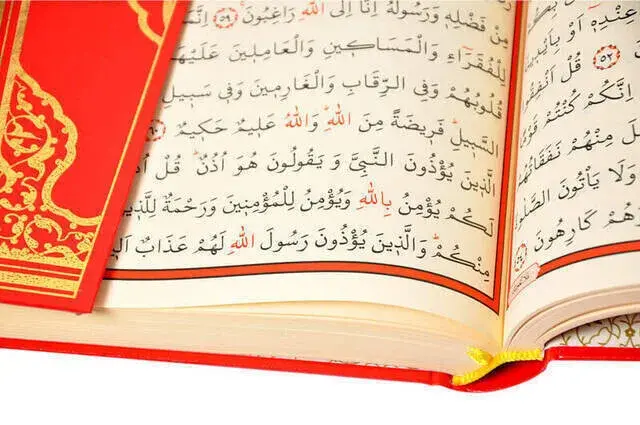 عِنْدِهِ اَوْ بِاَيْدٖينَا
٥٢ قُلْ اَنْفِقُوا
اِنَّكُمْ كُنْتُمْ قَوْمًا
مِنْهُمْ نَفَقَاتُهُمْ
وَلَا يَأْتُونَ الصَّلٰو
كَارِهُونَ ٥٤
مِنْ فَضْلِهٖ وَرَسُولُهُ اِنَّٓا اِلَى اللّٰهِ رَاغِبُونَ ٥٩ اِنَّمَا
لِلْفُقَرَٓاءِ وَالْمَسَاكٖينِ وَالْعَامِلٖينَ عَلَيْهَا
قُلُوبُهُمْ وَفِي الرِّقَابِ وَالْغَارِمٖينَ وَفٖي سَبٖيلِ
السَّبٖيلِ فَرٖيضَةً مِنَ اللّٰهِ وَاللّٰهُ عَلٖيمٌ حَكٖيمٌ ٦٠
الَّذٖينَ يُؤْذُونَ النَّبِيَّ وَيَقُولُونَ هُوَ اُذُنٌ قُلْ اُذُ
لَكُمْ يُؤْمِنُ بِاللّٰهِ وَيُؤْمِنُ لِلْمُؤْمِنٖينَ وَرَحْمَةٌ لِلَّذٖينَ
مِنْكُمْ وَالَّذٖينَ يُؤْذُونَ رَسُولَ اللّٰهِ لَهُمْ عَذَابٌ اَلٖيمٌ